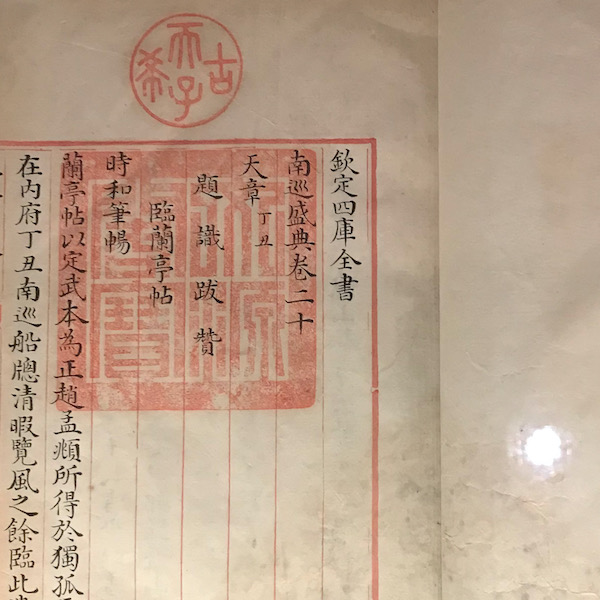 古希天子
欽定四庫全書
南巡盛典卷二十
天章丁丑
題識跋贊
臨蘭亭帖
時和筆暢
蘭亭帖以定武本為正趙孟頫所得於獨孤
在内府丁丑南巡船牕清暇覽風之餘臨此